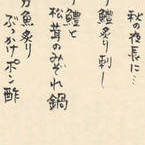 秋の夜長に…
鱧炙り刺し
鱧と
松茸のみぞれ鍋
魚炙り
ぶっかけポン酢